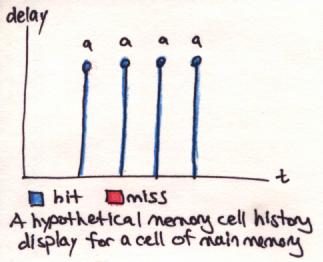 delay
a a a a
t
hit miss
A hypothetical memory cell history
display for a cell of main memory